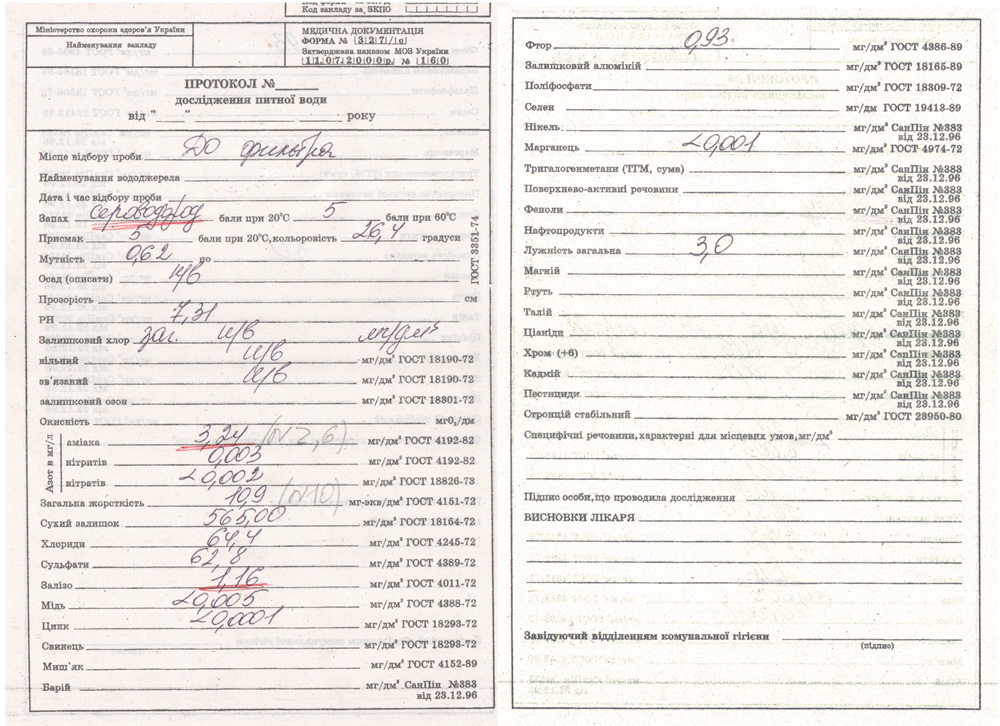 Код закладу за ЗКПО
Міністерство охорони здоров'я України
Найменування закладу
МЕДИЧНА ДОКУМЕНТАЦІЯ
ФОРМА № 327/о
Затверджена наказом МОЗ України
11072000р. № 160
ПРОТОКОЛ №
дослідження питної води
від " " року
Місце відбору проби ДО фильтра
Найменування вододжерела
Дата і час відбору проби
Запах сероводород бали при 20°С 5 бали при 60°С
Присмак 5 бали при 20°С, кольоровість 26,4 градуси
Мутність 0,62 по
Осад (описати) н/в
ГОСТ 3351-74
Прозорість см
РН 7,31
Залишковий хлор заг. н/в мг/дм³
вільний н/в мг/дм³ ГОСТ 18190-72
зв'язаний н/в мг/дм³ ГОСТ 18190-72
залишковий озон мг/дм³ ГОСТ 18301-72
Окисність мг0₂/дм
Азот в мг/л
аміака 3,24 (N 2,6) мг/дм³ ГОСТ 4192-82
нітритів 0,003 мг/дм³ ГОСТ 4192-82
нітратів <0,002 мг/дм³ ГОСТ 18826-73
Загальна жорсткість 10,9 (N10) мг-экв/дм³ ГОСТ 4151-72
Сухий залишок 565,00 мг/дм³ ГОСТ 18164-72
Хлориди 64,4 мг/дм³ ГОСТ 4245-72
Сульфати 62,8 мг/дм³ ГОСТ 4389-72
Залізо 1,16 мг/дм³ ГОСТ 4011-72
Мідь <0,005 мг/дм³ ГОСТ 4388-72
Цинк <0,0001 мг/дм³ ГОСТ 18293-72
Свинець мг/дм³ ГОСТ 18293-72
Миш'як мг/дм³ ГОСТ 4152-89
Барій мг/дм³ СанПін №383
від 23.12.96
Фтор 0,93 мг/дм³ ГОСТ 4386-89
Залишковий алюміній мг/дм³ ГОСТ 18165-89
Поліфосфати мг/дм³ ГОСТ 18309-72
Селен мг/дм³ ГОСТ 19413-89
Нікель мг/дм³ СанПін №383
від 23.12.96
Марганець <0,001 мг/дм³ ГОСТ 4974-72
Тригалогенметани (ТГМ, сума) мг/дм³ СанПін №383
від 23.12.96
Поверхнево-активні речовини мг/дм³ СанПін №383
від 23.12.96
Феноли мг/дм³ СанПін №383
від 23.12.96
Нафтопродукти мг/дм³ СанПін №383
від 23.12.96
Лужність загальна 3,0 мг/дм³ СанПін №383
від 23.12.96
Магній мг/дм³ СанПін №383
від 23.12.96
Ртуть мг/дм³ СанПін №383
від 23.12.96
Талій мг/дм³ СанПін №383
від 23.12.96
Ціаніди мг/дм³ СанПін №383
від 23.12.96
Хром (+6) мг/дм³ СанПін №383
від 23.12.96
Кадмій мг/дм³ СанПін №383
від 23.12.96
Пестициди мг/дм³ СанПін №383
від 23.12.96
Стронцій стабільний мг/дм³ ГОСТ 23950-80
Специфічні речовини, характерні для місцевих умов, мг/дм³
Підпис особи, що проводила дослідження
ВИСНОВКИ ЛІКАРЯ
Завідуючий відділенням комунальної гігієни
(підпис)